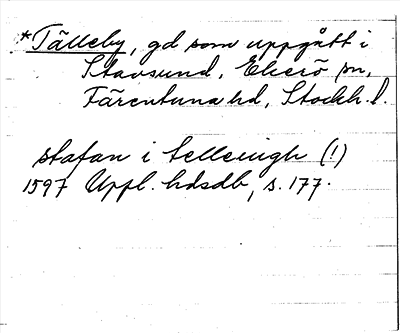 *Tälleby, gd som uppgått i
Stavsund, Ekerö sn,
Färentuna hd, Stockh. l.
stafan i tellewigh (!)
1597 Uppl. hdsdb, s. 177.